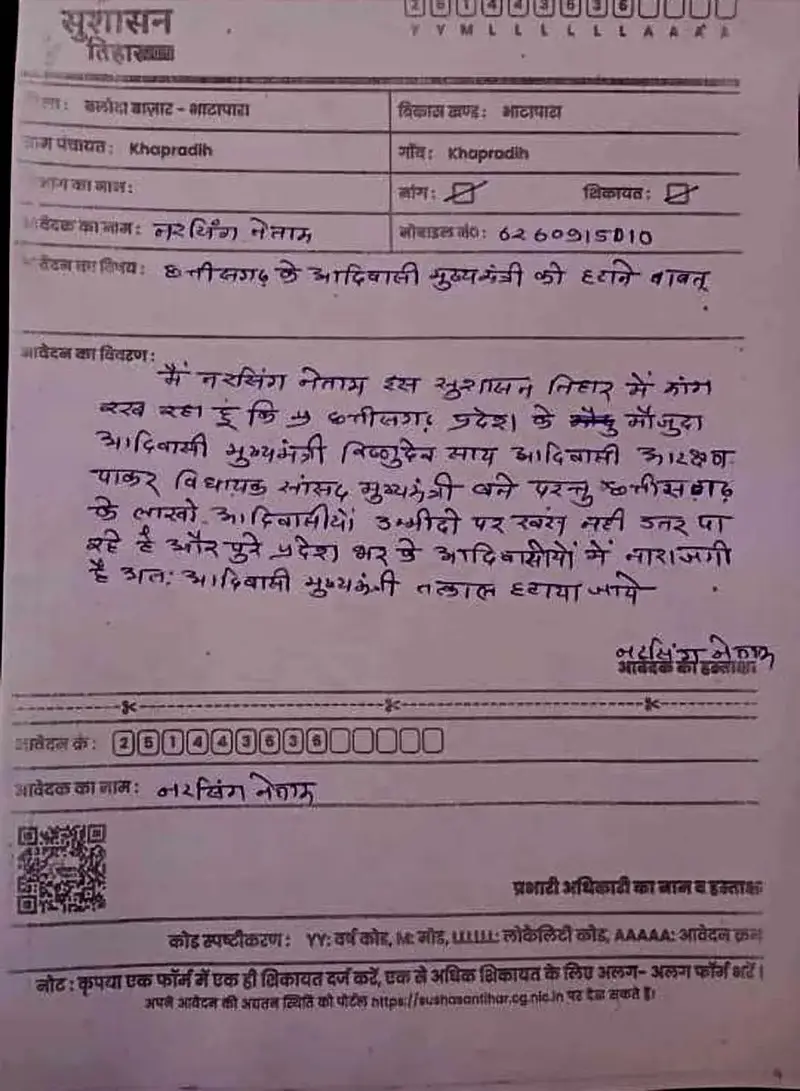 सुशासन
तिहार
2 5 1 4 4 3 6 3 6
Y Y M L L L L L L A A A A
बलौदा बाज़ार - भाटापारा विकास खण्ड: भाटापारा
ग्राम पंचायत: Khapradih गाँव: Khapradih
भाग का नाम: मांग: शिकायत:
आवेदक का नाम: नरसिंग नेताम मोबाइल नं0: 6260915010
आवेदन का विषय: छत्तीसगढ़ के आदिवासी मुख्यमंत्री को हटाने बाबत्
आवेदन का विवरण:
मैं नरसिंग नेताम इस सुशासन तिहार में मांग
रख रहा हूं कि छत्तीसगढ़ प्रदेश के मौजुदा
आदिवासी मुख्यमंत्री विष्णुदेव साय आदिवासी आरक्षण
पाकर विधायक सांसद मुख्यमंत्री बने परन्तु छत्तीसगढ़
के लाखो आदिवासीयों उम्मीदो पर नही उतर पा
रहे है और पुरे प्रदेश भर के आदिवासीयों में नाराजगी
है अत: आदिवासी मुख्यमंत्री तत्काल हटाया जाये
नरसिंग नेताम
आवेदक का हस्ताक्षर
आवेदन क्रं: 2 5 1 4 4 3 6 3 6
आवेदक का नाम: नरसिंग नेताम
प्रभारी अधिकारी का नाम व हस्ताक्षर
कोड स्पष्टीकरण: YY: वर्ष कोड, M: मोड, LLLLLL: लोकैलिटी कोड, AAAAA: आवेदन क्रम
नोट: कृपया एक फॉर्म में एक ही शिकायत दर्ज करें, एक से अधिक शिकायत के लिए अलग- अलग फॉर्म भरें।
अपने आवेदन की अद्यतन स्थिति को पोर्टल https://sushasantihar.cg.nic.in पर देख सकते हैं।